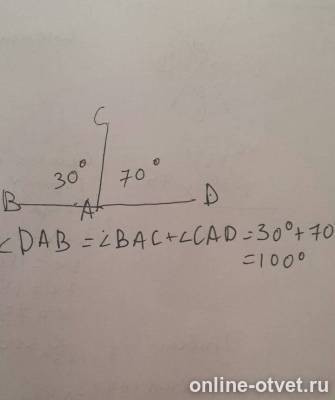 C
30° 70°
B A D
∠DAB = ∠BAC+∠CAD = 30°+70
=100°
online-otvet.ru